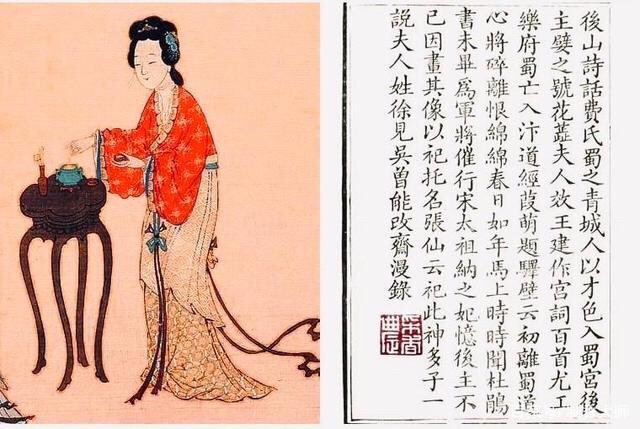 後山詩話費氏蜀之青城人以才色入蜀宮後
主嬖之號花蕋夫人效王建作宮詞百首尤工
樂府蜀亡入汴道經葭萌題驛壁云初離蜀道
心將碎離恨綿綿春日如年馬上時時聞杜鵑
書未畢爲軍將催行宋太祖納之妃憶後主不
已因畫其像以祀托名張仙云祀此神多子一
說夫人姓徐見吳曾能改齋漫錄